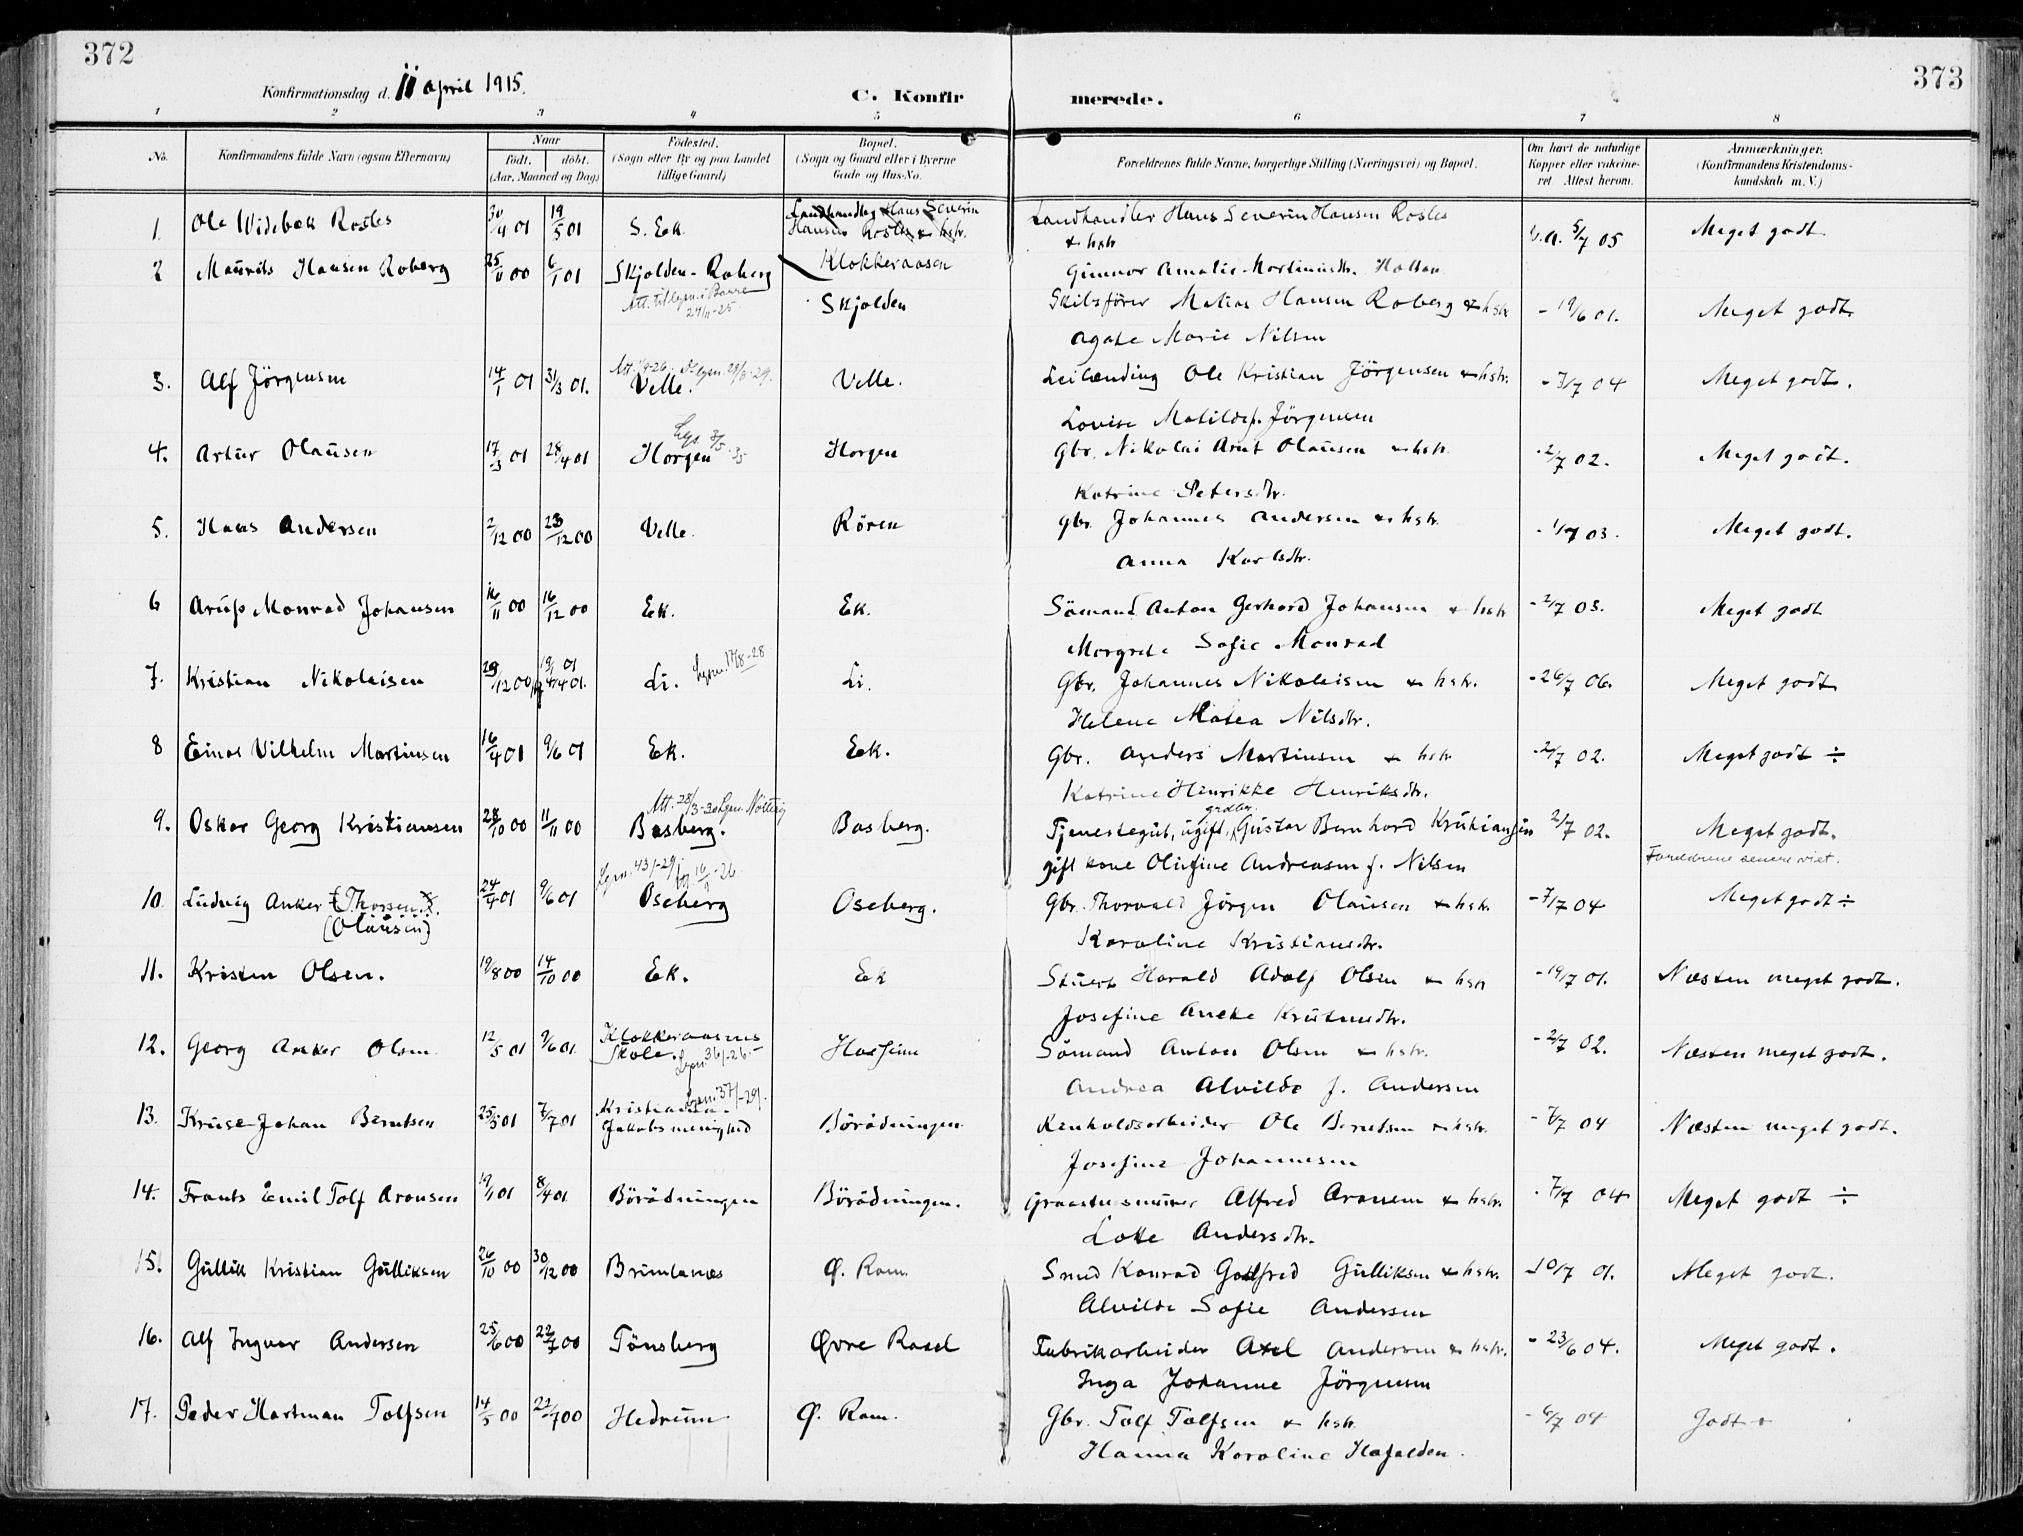 372
373
Konfirmationsdag d. 11 april 1915.
C. Konfir merede.
1 2 3 4 5 6 7 8
No.
Konfirmandens fulde Navn (ogsaa Efternavn)
Naar
født. døbt.
(Aar, Maaned og Dag)
Fødested.
(Sogn eller By og paa Landet
tillige Gaard)
Bopæl.
(Sogn og Gaard eller i Byerne
Gade og Hus-No.
Forældrenes fulde Navne, borgerlige Stilling (Næringsvei) og Bopæl.
Om havt de naturlige
Kopper eller vakcine-
ret. Attest herom.
Anmærkninger.
(Konfirmandens Kristendoms-
kundskab m. V.)
1. Ole Widebæk 30/4 01 19/5 01 S. Eek. Landhandler Hans Severin Hansen
& hstr. 5/7 05 Meget godt
Klokkeraasen Gunnor Amalie Martinusdtr. Holtan
2 Maurits Hansen Roberg 25/11 00 6/1 01 Skjolden-Roberg
Skjolden Skibsfører Matias Hansen Roberg & hstr. - 19/6 01. Meget godt
Att. til lysn. i Borre
24/11-25.
Agate Marie Nilsen
3. Alf Jörgensen 14/1 01 31/3 01. Velle. Velle. Leilænding Ole Kristian Jörgensen & hstr. - 7/7 04 Meget godt.
Lovise Matilde f. Jörgensen
4. Artur Olausen 17/3 01 28/4 01 Horgen Horgen Gbr. Nikolai Arnt Olausen & hstr. - 2/7 02. Meget godt.
Katrine Petersdtr.
5. Hans Andersen 2/12 00 23/12 00 Velle. Rören Gbr. Johannes Andersen & hstr. - 1/7 03. Meget godt.
Anna Karlsdtr.
6 Monrad Johansen 16/11 00 16/12 00 Eek. Eek. Sömand Anton Gerhard Johansen & hstr. - 2/7 03. Meget godt
Margrete Sofie Monrad
7. Kristian Nikolaisen 29/12 00 Li. Lysn. 17/8-28 Li. Gbr. Johannes Nikolaisen & hstr. - 26/7 06. Meget godt
Helene Matea Nilsdtr.
8 Einar Vilhelm Martinsen 16/4 01 9/6 01 Eek. Eek. Gbr. Anders Martinsen & hstr. - 2/7 02. Meget godt ÷
Katrine Henrikke Henriksdtr.
Att. 28/3-30 Lysn. Nötteröy
9. Oskar Georg Kristiansen 28/10 00 11/11 00 Basberg. Basberg. Tjenestegut, ugift, Gustav Bernhard Kristiansen 2/7 02. Meget godt.
gift kone Olufine Andreasen f. Nilsen Forældrene senere viet.
10. Ludvig Anker (Thorsen). 24/4 01 9/6 01 Oseberg Oseberg. Gbr. Thorvald Jörgen Olausen & hstr. - 7/7 04 Meget godt ÷
(Olausen) Karoline Kristiansdtr.
11. Kristen Olsen. 19/8 00 14/10 00 Eek. Eek Stuert Harald Adolf Olsen & hstr - 19/7 01. Næsten meget godt.
Josefine Kristensdtr.
12. Georg Anker Olsen 12/5 01 9/6 01. Klokkeraasens Sömand Anton Olsen & hstr. - 2/7 02. Næsten meget godt.
Skole. Andrea Alvilde f. Andersen
13. Kruse Johan Berntsen 25/5 01 7/7 01 Kristiania. Börödningen Renholdsarbeider Ole Berntsen & hstr. - 7/7 04 Næsten meget godt.
Jakobs menighed Josefine Johannesen
14. Frants Emil Tolf Aronsen 19/1 01 8/4 01 Börödningen Börödningen. Alfred Aronsen & hstr. - 7/7 04 Meget godt ÷
Lotte Andersdtr.
15. Gullik Kristian Gulliksen 26/10 00 30/12 00 Brunlanes Ø. Ram. Smed Konrad Godfred Gulliksen & hstr. - 10/7 01. Meget godt.
Alvilde Sofie Andersen
16. Alf Ingvar Andersen 25/6 00 22/7 00 Tönsberg Øvre Fabrikarbeider Axel Andersen & hstr. - 23/6 04. Meget godt.
Inga Johanne Jörgensen
17. Peder Hartman Tolfsen 14/5 00 22/7 00 Hedrum Ø. Ram. Gbr. Tolf Tolfsen & hstr. - 6/7 04 Godt +
Hanna Karoline